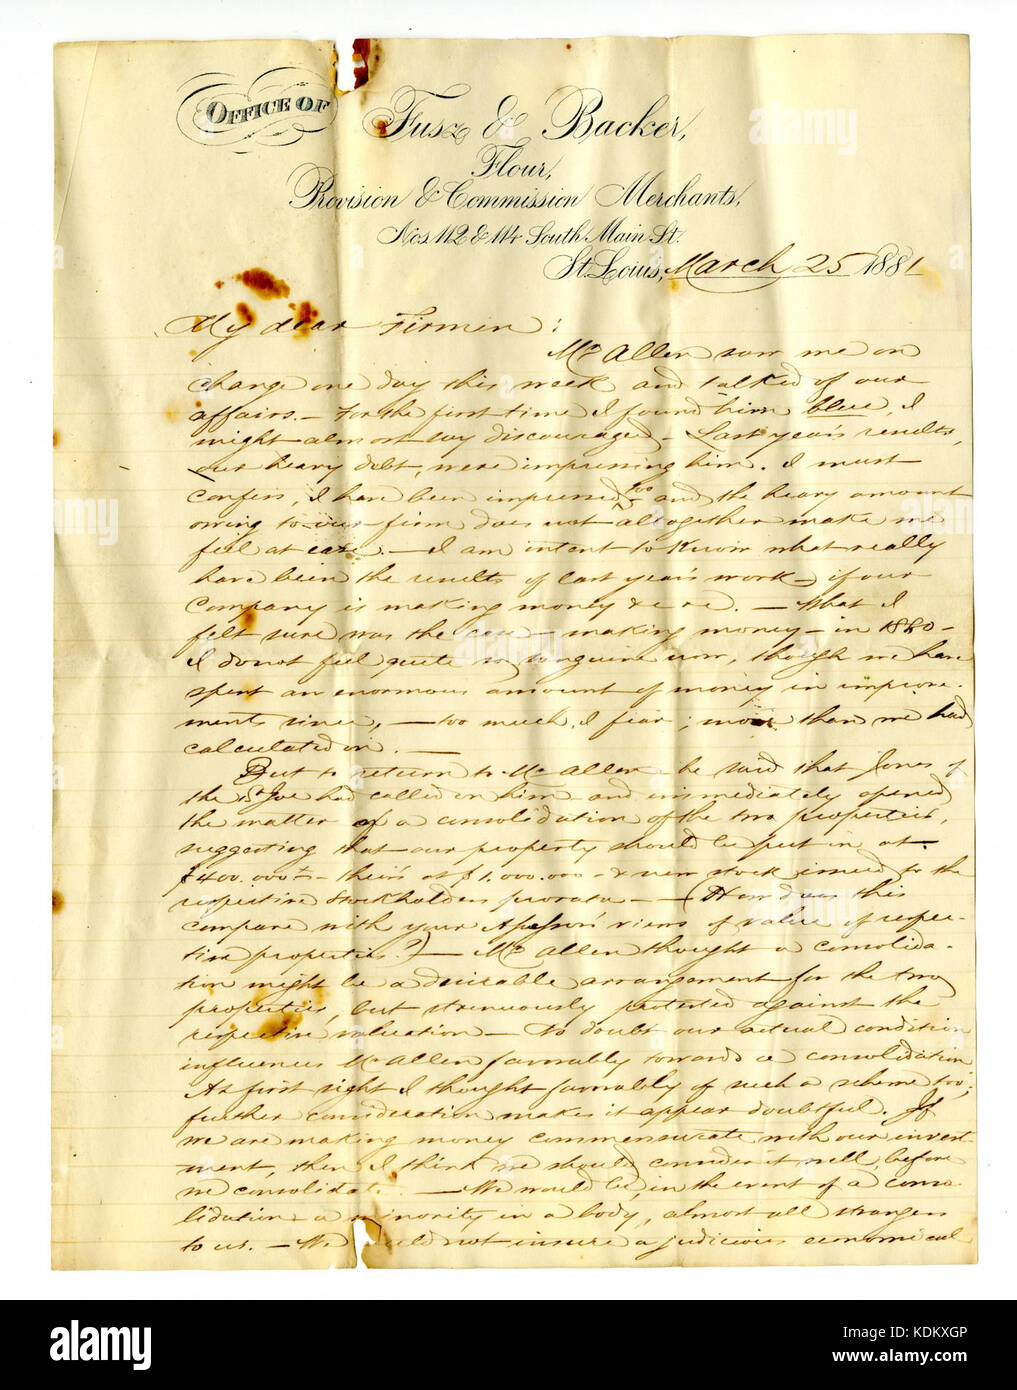 OFFICE OF
Fusz & Backer,
Flour,
Provision & Commission Merchants,
Nos 112 & 114 South Main St.
St. Louis, March 25 1881
My dear Firmin:
Mr Allen saw me on
change one day this week and talked of our
affairs. — For the first time I found him blue, I
might almost say discouraged — Last year's results,
our heavy debt, were impressing him. I must
confess, I have been impressed too and the heavy amount
owing to our firm does not altogether make me
feel at ease. — I am intent to know what really
have been the results of last year's work — if our
Company is making money &c — What I
felt sure was the case — making money — in 1880 —
I do not feel quite so sanguine now, though we have
spent an enormous amount of money in improve-
ments since, — too much, I fear; more than we had
calculated on. —
But to return to Mc Allen — he said that Jones of
the St Joe had called on him and immediately opened
the matter of a consolidation of the two properties,
suggesting that our property should be put in at
$400.000 — their's at $1.000.000 — & new stock issued to the
respective Stockholders prorata — (How does this
compare with your views of value of respec-
tive properties?) — Mc Allen thought a consolida-
tion might be a desirable arrangement for the two
properties, but strenuously protested against the
respective valuation — No doubt our actual condition
influences Mc Allen favorably towards a consolidation
At first sight I thought favorably of such a scheme too;
further consideration makes it appear doubtful. If
we are making money commensurate with our invest-
ment, then I think we should consider it well, before
we consolidate. — We would be, in the event of a conso-
lidation a minority in a body, almost all strangers
to us. — We could not insure a judicious economical
alamy
alamy
Image ID: KDKXGP
www.alamy.com